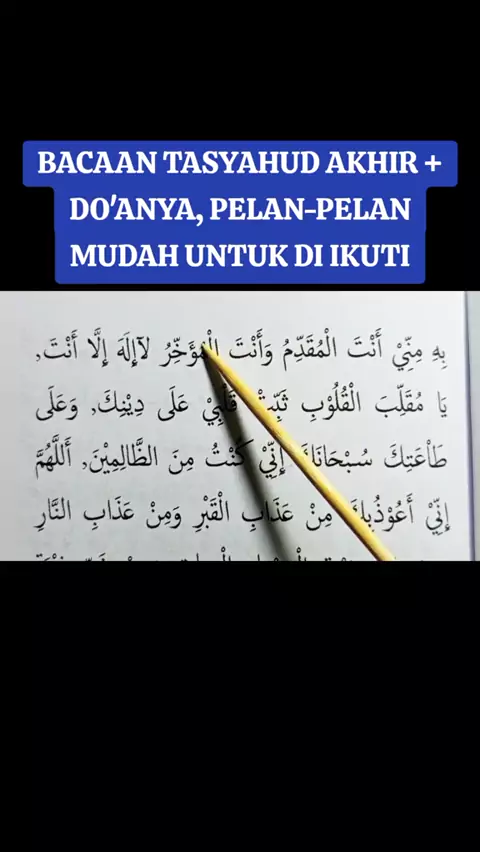 BACAAN TASYAHUD AKHIR +
DO'ANYA, PELAN-PELAN
MUDAH UNTUK DI IKUTI
بِهِ مِنِّيْ أَنْتَ الْمُقَدِّمُ وَأَنْتَ الْمُؤَخِّرُ لآإِلَهَ إِلَّا أَنْتَ,
يَا مُقَلِّبَ الْقُلُوْبِ ثَبِّتْ قَلْبِيْ عَلَى دِيْنِكَ, وَعَلَى
طَاْعَتِكَ سُبْحَانَكَ إِنِّيْ كُنْتُ مِنَ الظَّالِمِيْنَ, أَللَّهُمَّ
إِنِّيْ أَعُوْذُبِكَ مِنْ عَذَابِ الْقَبْرِ وَمِنْ عَذَابِ النَّارِ